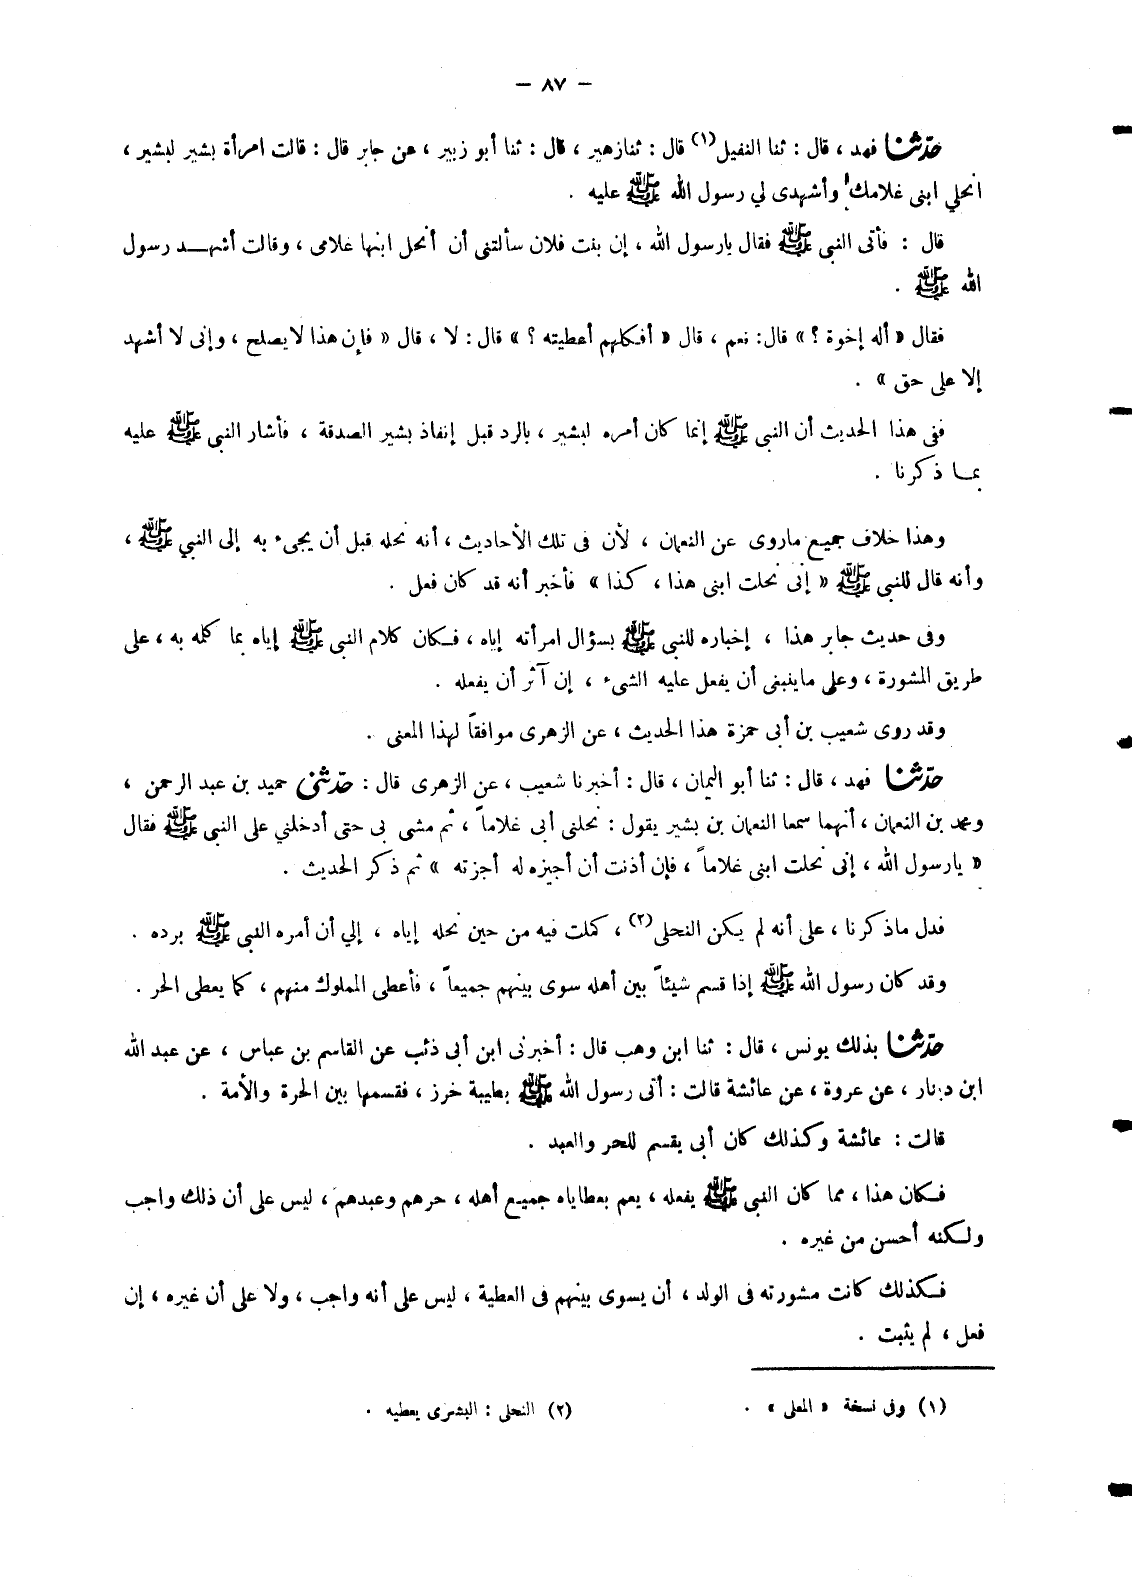 — ٨٧ —
حدثنا فهد ، قال : ثنا النفيل(١) قال : ثنازهير ، قال : ثنا أبو زبير ، عن جابر قال : قالت امرأة بشير لبشير ،
انحلي ابنى غلامك وأشهدى لي رسول الله ﷺ عليه .
قال : فأتى النبى ﷺ فقال يارسول الله ، إن بنت فلان سألتنى أن أنحل ابنها غلامى ، وقالت أشهـــد رسول
الله ﷺ .
فقال « أله إخوة ؟ » قال: نعم ، قال « أفكلهم أعطيته ؟ » قال : لا ، قال « فإن هذا لايصلح ، وإنى لا أشهد
إلا على حق » .
ففى هذا الحديث أن النبى ﷺ إنما كان أمره لبشير ، بالرد قبل إنفاذ بشير الصدقة ، فأشار النبى ﷺ عليه
بمـا ذكرنا .
وهذا خلاف جميع ماروى عن النعمان ، لأن فى تلك الأحاديث ، أنه نحله قبل أن يجىء به إلى النبي ﷺ ،
وأنه قال للنبى ﷺ « إنى نحلت ابنى هذا ، كذا » فأخبر أنه قد كان فعل .
وفى حديث جابر هذا ، إخباره للنبى ﷺ بسؤال امرأته إياه ، فكان كلام النبى ﷺ إياه بما كلمه به ، على
طريق المشورة ، وعلى ماينبغى أن يفعل عليه الشىء ، إن آثر أن يفعله .
وقد روى شعيب بن أبى حمزة هذا الحديث ، عن الزهرى موافقاً لهذا المعنى .
حدثنا فهد ، قال : ثنا أبو اليمان ، قال : أخبرنا شعيب ، عن الزهرى قال : حدثنى حميد بن عبد الرحمن ،
ومحمد بن النعمان ، أنهما سمعا النعمان بن بشير يقول : نحلنى أبى غلاماً ، ثم مشى بى حتى أدخلني على النبى ﷺ فقال
« يارسول الله ، إنى نحلت ابنى غلاماً ، فإن أذنت أن أجيزه له أجزته » ثم ذكر الحديث .
فدل ماذكرنا ، على أنه لم يكن النحلى(٢) ، كملت فيه من حين نحله إياه ، إلي أن أمره النبى ﷺ برده .
وقد كان رسول الله ﷺ إذا قسم شيئاً بين أهله سوى بينهم جميعاً ، فأعطى المملوك منهم ، كما يعطى الحر .
حدثنا بذلك يونس ، قال : ثنا ابن وهب قال : أخبرنى ابن أبى ذئب عن القاسم بن عباس ، عن عبد الله
ابن دينار ، عن عروة ، عن عائشة قالت : أتى رسول الله ﷺ بطيبة خرز ، فقسمها بين الحرة والأمة .
قالت : عائشة وكذلك كان أبى يقسم للحر والعبد .
فكان هذا ، مما كان النبى ﷺ يفعله ، يعم بعطاياه جميع أهله ، حرهم وعبدهم ، ليس على أن ذلك واجب
ولكنه أحسن من غيره .
فكذلك كانت مشورته فى الولد ، أن يسوى بينهم فى العطية ، ليس على أنه واجب ، ولا على أن غيره ، إن
فعل ، لم يثبت .
(١) وفى نسخة « المعلى » .
(٢) النحلى : البشرى يعطيه .